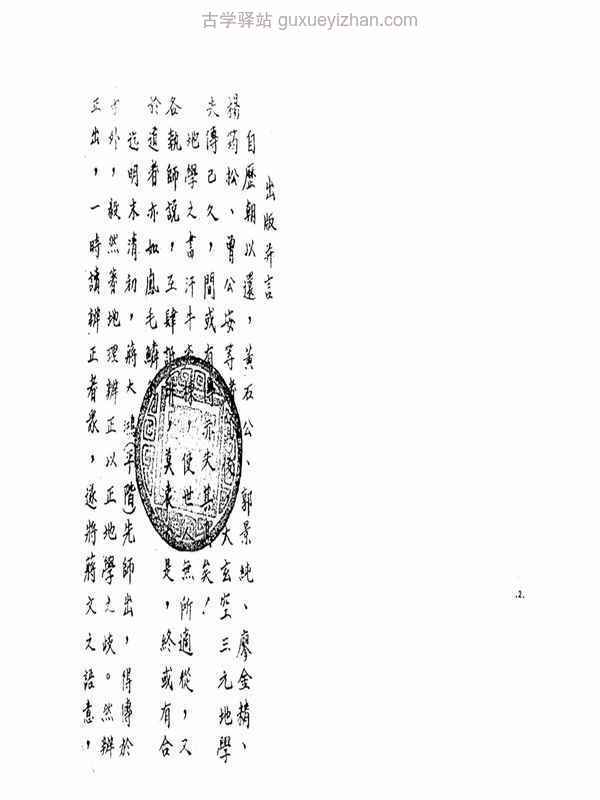 古学驿站 guxueyizhan.com
出版弁言
自歷朝以還，黃石公、郭景純、廖金精、
楊筠松、曾公安等 大玄空三元地學
失傳已久，間或有 亦失其 矣！
地學之書汗牛 ，使世人無所適從，又
各執師說，互肆詆 ，莫衷 是，終或有合
於道者亦如鳳毛
迄明末清初，蔣大鴻（平階）先師出，得傳於
方外，毅然著地理辨正以正地學之歧。然辨
正出，一時讀辨正者眾，遂將蔣文之語意，
.2.